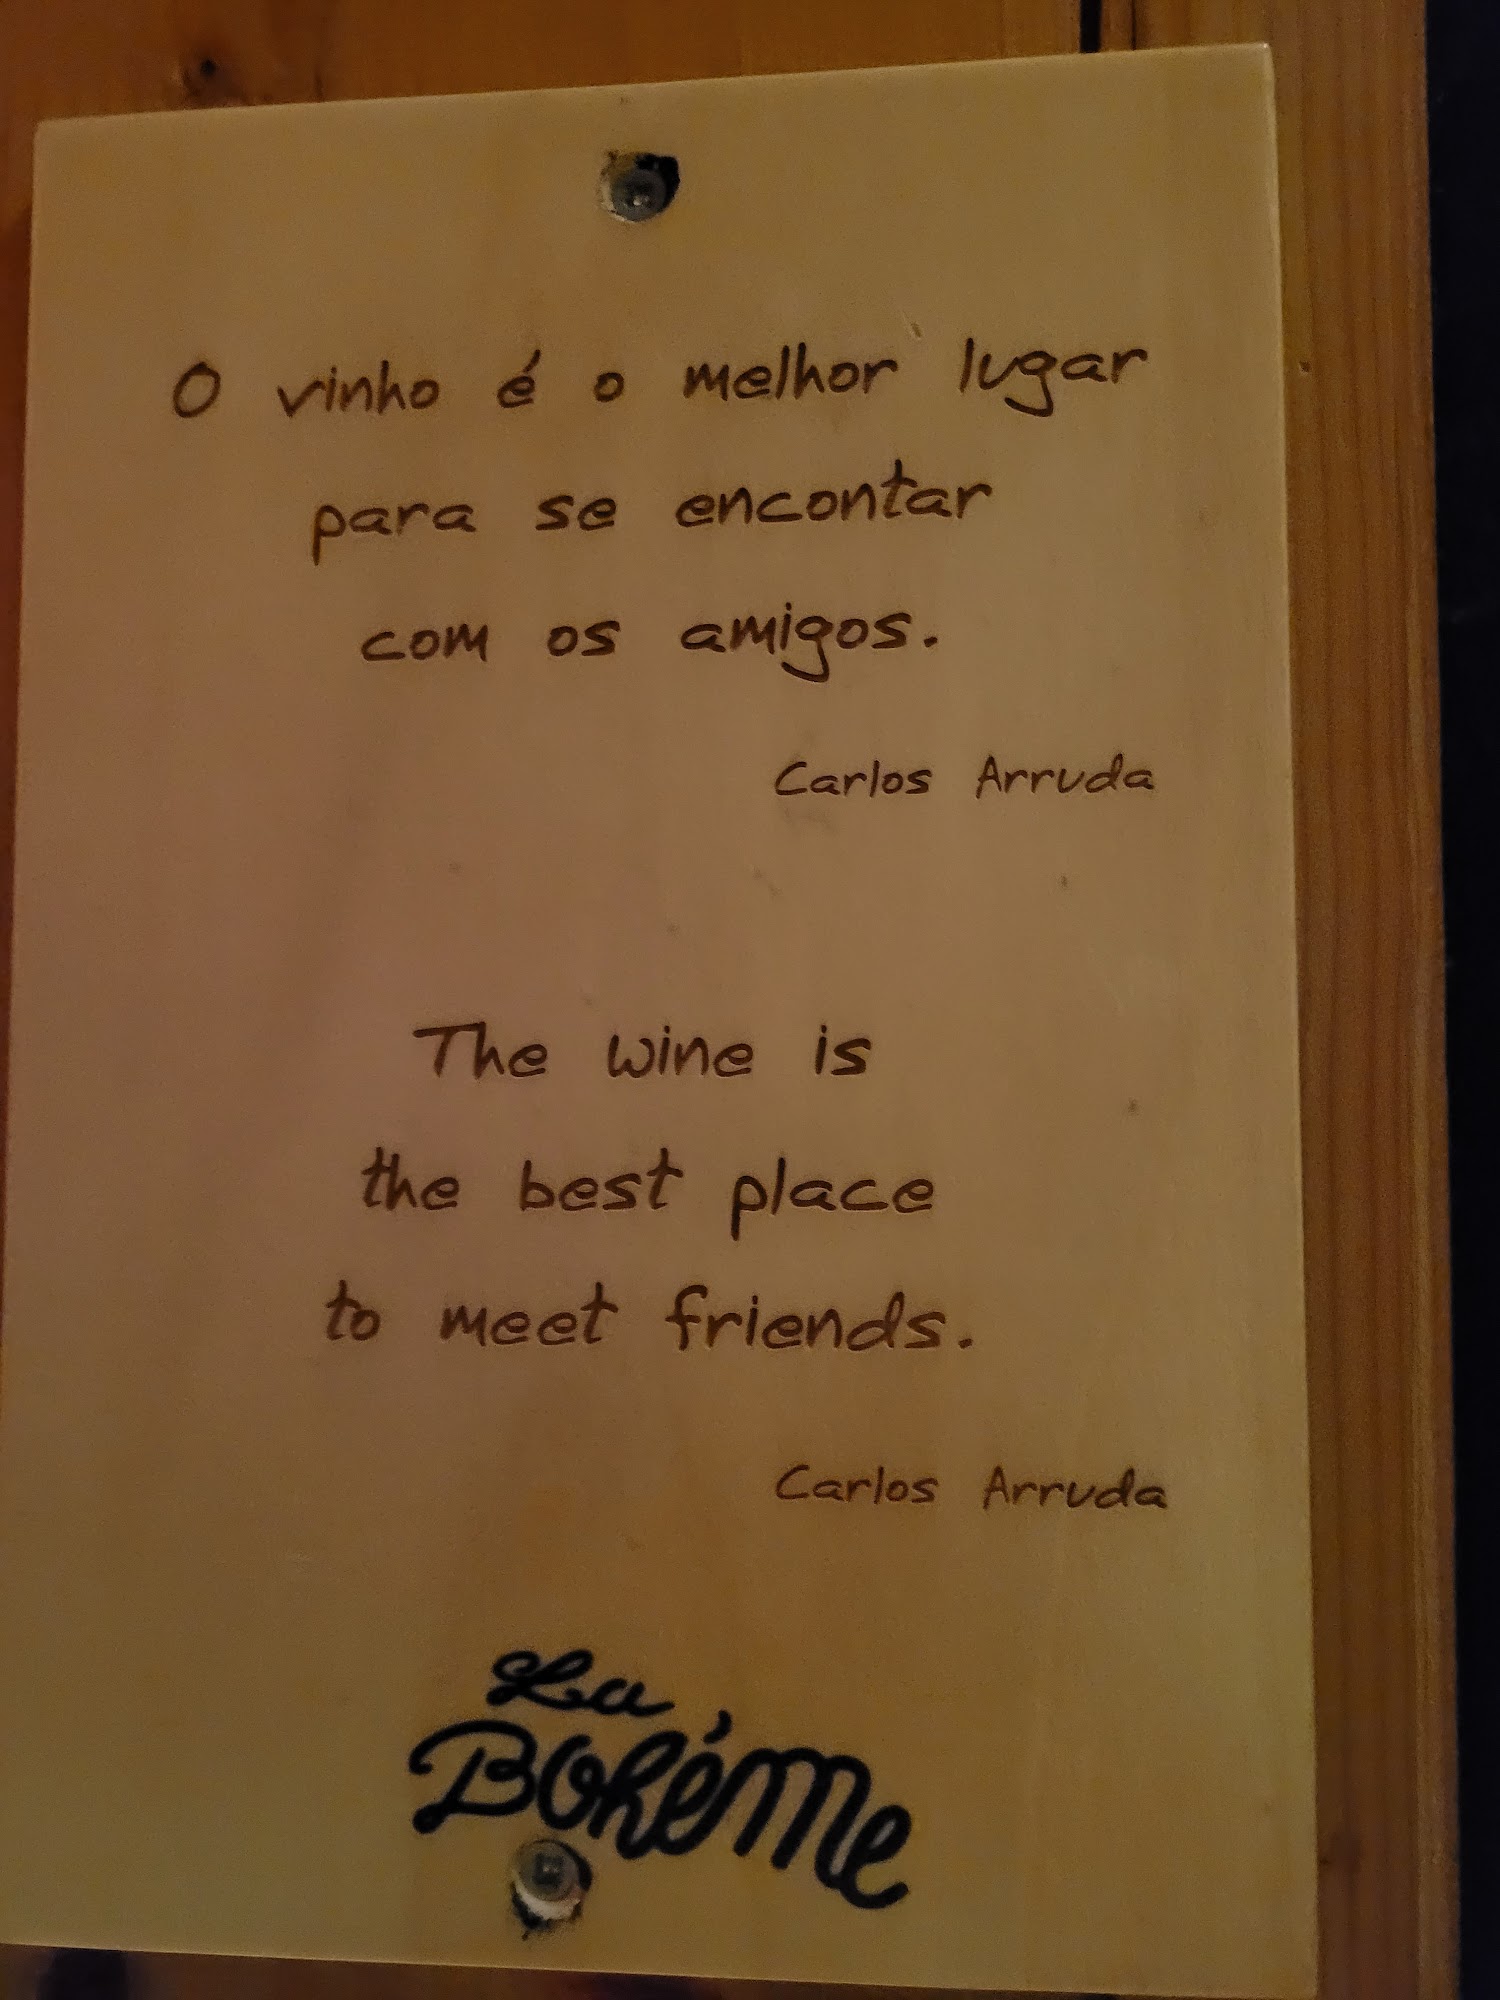 O vinho é o melhor lugar
para se encontar
com os amigos.
Carlos Arruda
The wine is
the best place
to meet friends.
Carlos Arruda
La
Bohéme